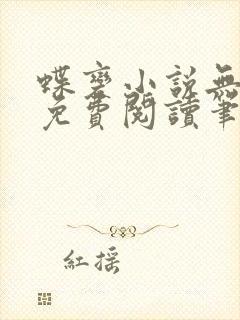 蝶變小說無
免費閱讀筆
紅搖